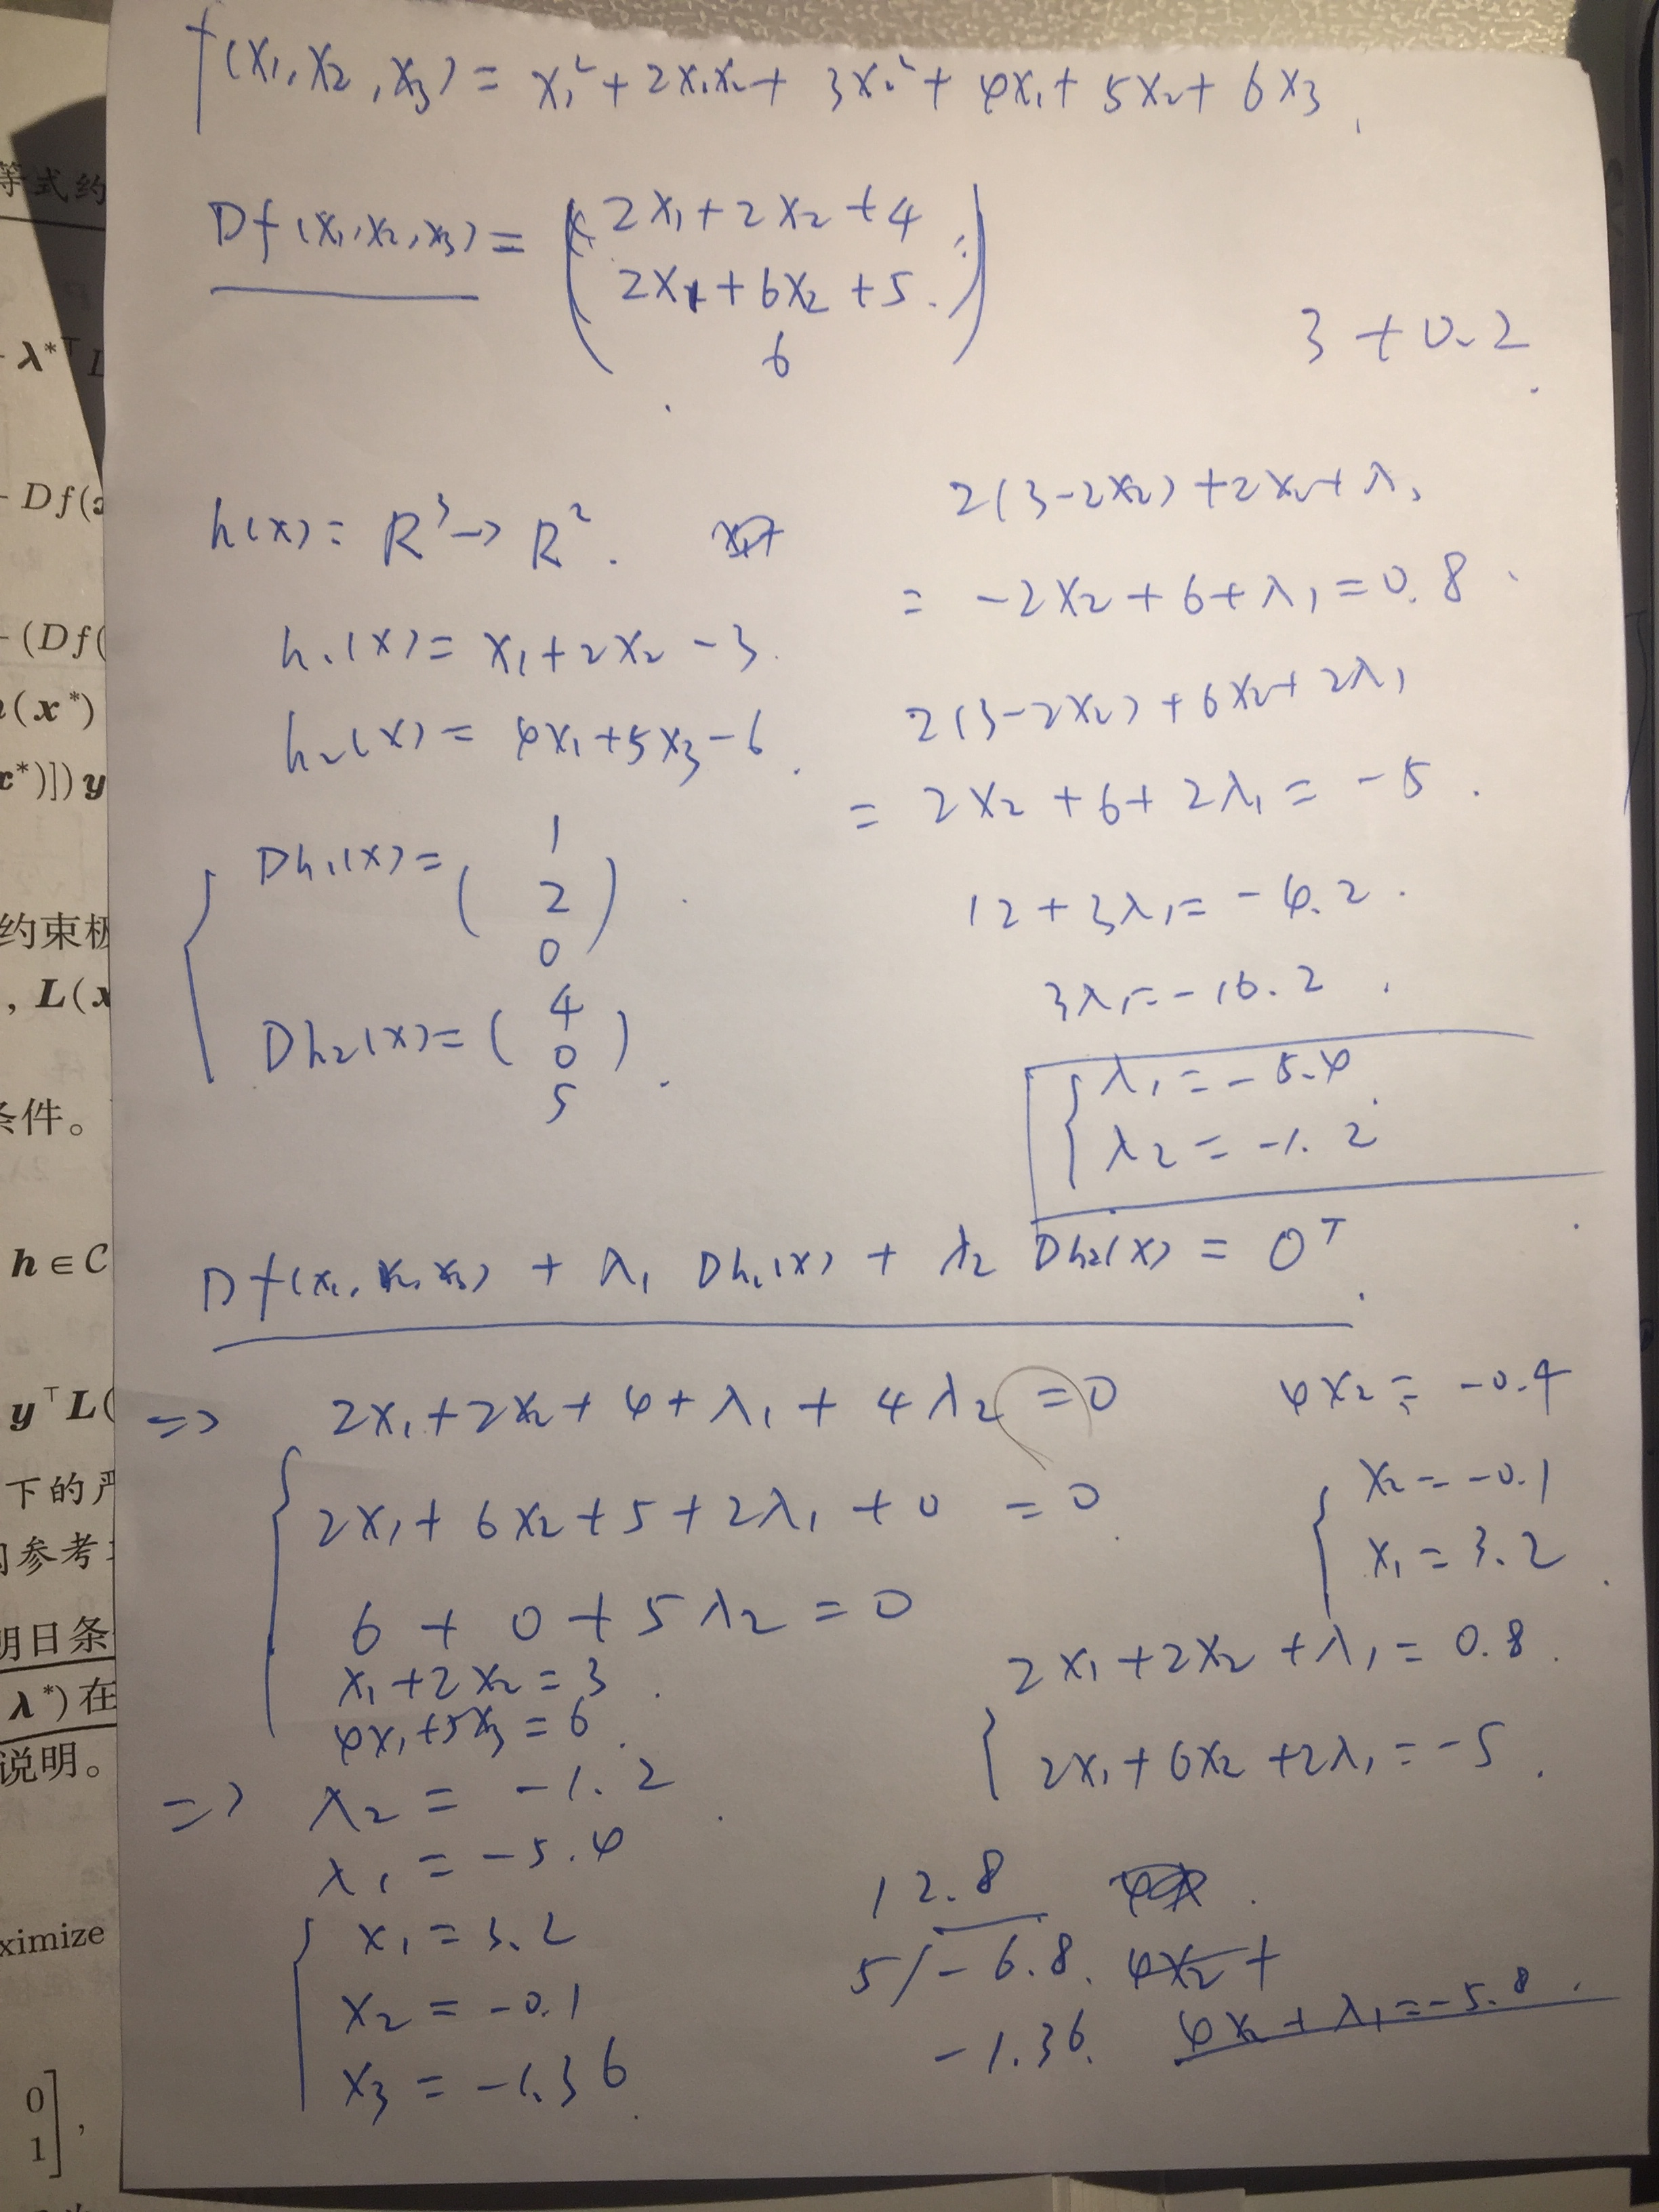 f(x₁, x₂, x₃) = x₁² + 2x₁x₂ + 3x₂² + 4x₁ + 5x₂ + 6x₃
Df(x₁, x₂, x₃) = ( 2x₁ + 2x₂ + 4
2x₁ + 6x₂ + 5
6 )
3 + 0.2
h(x) = R³ → R².
h₁(x) = x₁ + 2x₂ - 3.
h₂(x) = 4x₁ + 5x₃ - 6.
Dh₁(x) = ( 1
2
0 )
Dh₂(x) = ( 4
0
5 ).
2(3-2x₂) + 2x₂ + λ₁
= -2x₂ + 6 + λ₁ = 0.8
2(3-2x₂) + 6x₂ + 2λ₁
= 2x₂ + 6 + 2λ₁ = -5.
12 + 3λ₁ = -4.2.
3λ₁ = -16.2.
λ₁ = -5.4.
λ₂ = -1.2
Df(x₁, x₂, x₃) + λ₁ Dh₁(x) + λ₂ Dh₂(x) = 0ᵀ.
=> 2x₁ + 2x₂ + 4 + λ₁ + 4λ₂ = 0
2x₁ + 6x₂ + 5 + 2λ₁ + 0 = 0
6 + 0 + 5λ₂ = 0
x₁ + 2x₂ = 3.
4x₁ + 5x₃ = 6.
=> λ₂ = -1.2.
λ₁ = -5.4
x₁ = 3.2
x₂ = -0.1
x₃ = -1.36.
4x₂ = -0.4
x₂ = -0.1
x₁ = 3.2.
2x₁ + 2x₂ + λ₁ = 0.8.
2x₁ + 6x₂ + 2λ₁ = -5.
12.8
5/-6.8. 4x₂ +
-1.36. 4x₂ + λ₁ = -5.8.
等式约
λ*ᵀL
Df(x
-(Df(
(x*)
x*)])y
约束极
, L(x
条件。
h∈C
yᵀL(
下的严
的参考
明日条
λ*)在
说明。
ximize
0
1],